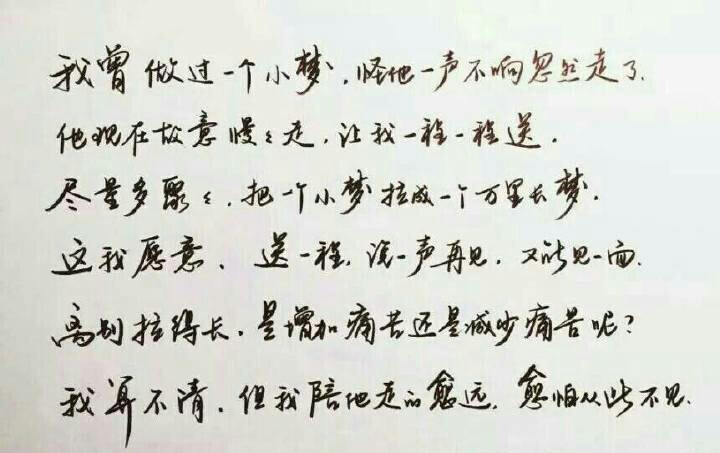 我曾做过一个小梦，怪他一声不响忽然走了．
他现在故意慢々走，让我一程一程送．
尽量多聚々，把一个小梦拉成一个万里长梦．
这我愿意、送一程，说一声再见，又能见一面．
离别拉得长，是增加痛苦还是减少痛苦呢？
我算不清．但我陪他走的愈远，愈怕从此不见．